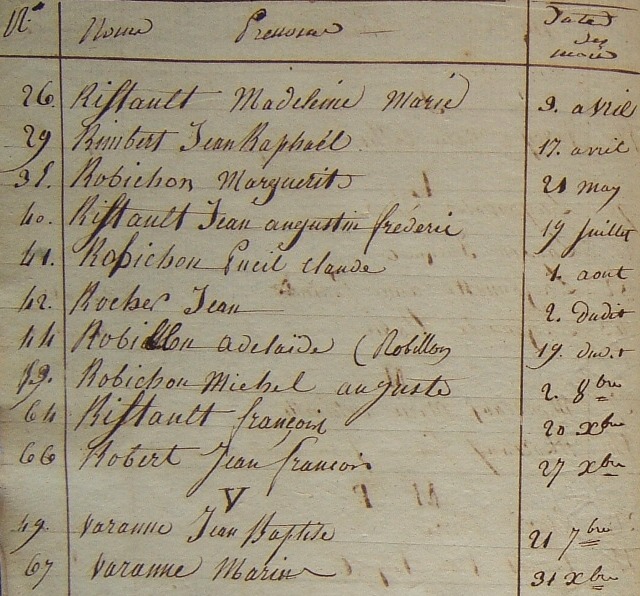 N.º Noms Prenoms Dates des mois
26. Riffault Madeleine Marie 3. avril
29 Rimbert Jean Raphaël 17. avril
Robichon Marguerite 21 may
40. Riffault Jean augustin frédéric 19 juillet
41. Robichon claude 1. aout
42. Rocher Jean 2. dudit
44 Robillon adelaïde (Robillon) 19. dudit
Robichon Michel auguste 2. 8bre
64 Riffault françois 20 xbre
66 Robert Jean françois 27 xbre
V
49. Varanne Jean Baptiste 21 7bre
67 Varanne Marin 31 xbre